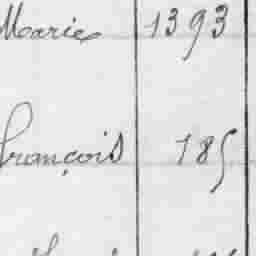 Marie 1393
François 185